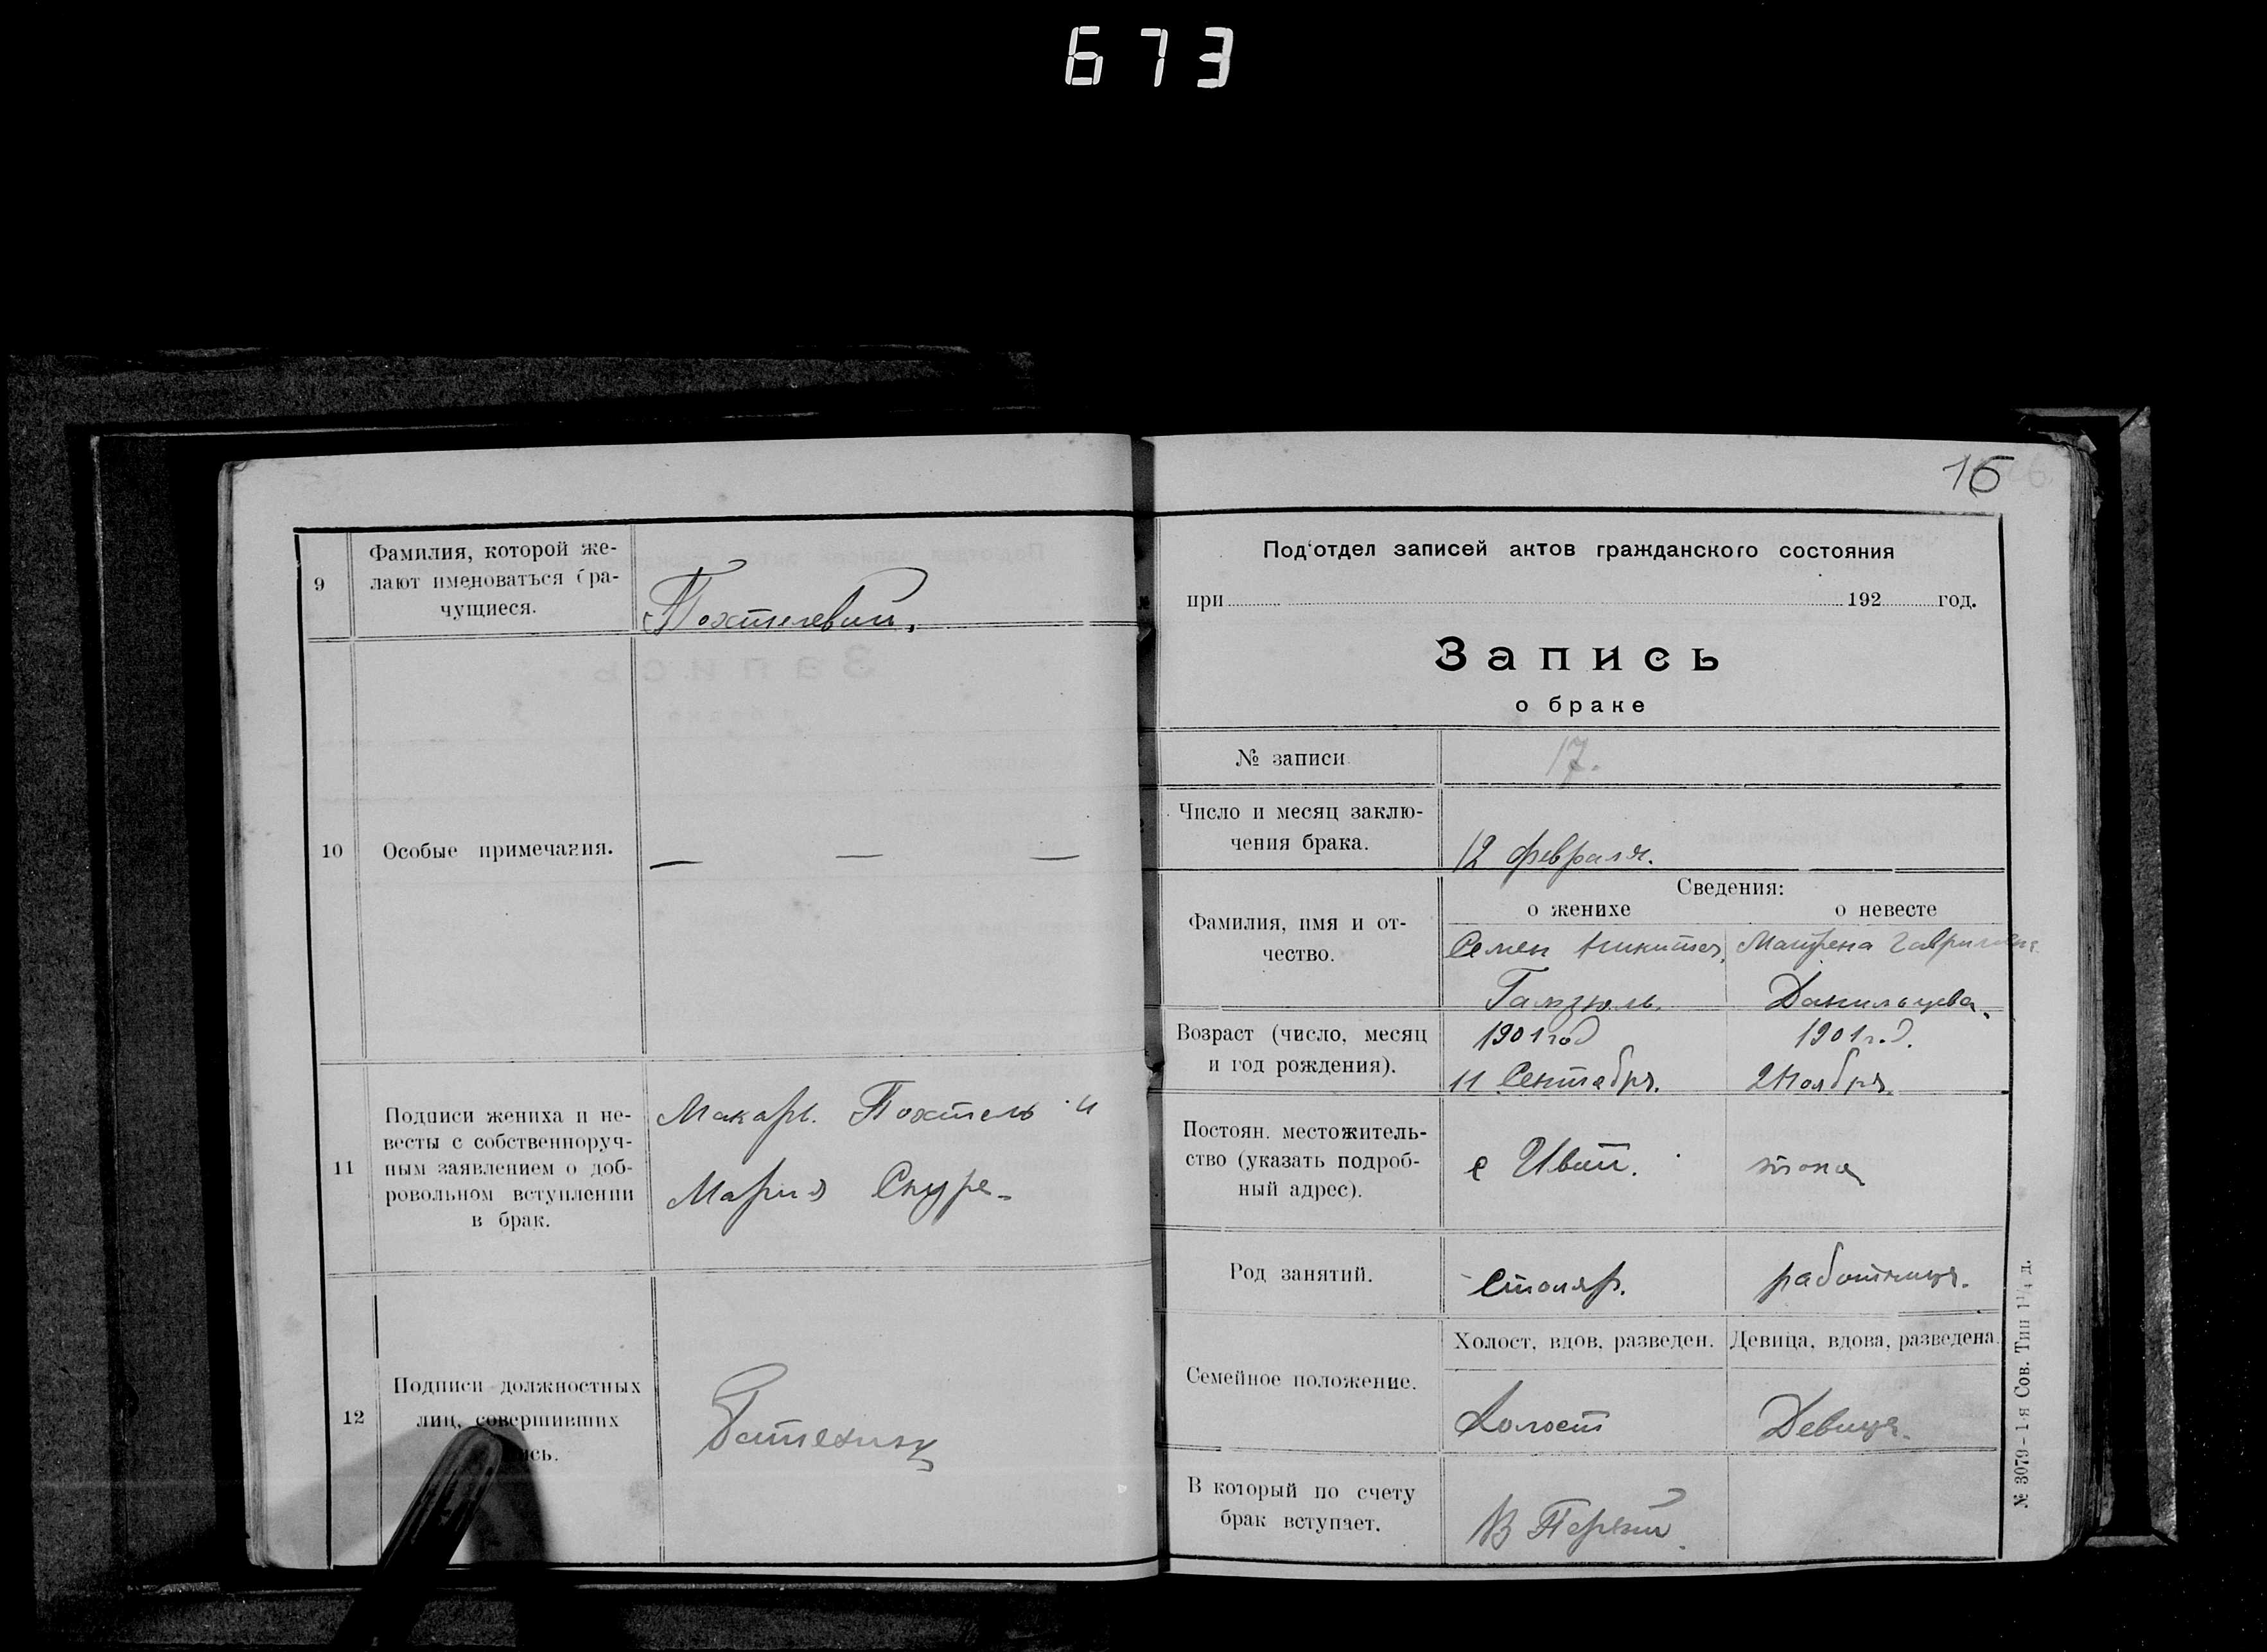 673
9
Фамилия, которой же-
лают именоваться бра-
чущиеся.
10
Особые примечания.
— — —
11
Подписи жениха и не-
весты с собственноруч-
ным заявлением о доб-
ровольном вступлении
в брак.
Макарь. Похтель и
Мария
12
Подписи должностных
лиц, совершивших
сь.
16
Под'отдел записей актов гражданского состояния
при 192 год.
Запись
о браке
№ записи
17.
Число и месяц заклю-
чения брака.
12 февраля.
Сведения:
о женихе о невесте
Фамилия, имя и от-
чество.
Семен Никитов, Матрена
Гамзюль. Данильцева.
Возраст (число, месяц
и год рождения).
1901 год 1901 г.
11 Сентября. 2 Ноября.
Постоян. местожитель-
ство (указать подроб-
ный адрес).
с тоже
Род занятий.
Столяр. работница.
Семейное положение.
Холост, вдов, разведен. Девица, вдова, разведена.
Холост Девица.
В который по счету
брак вступает.
В Первый.
№ 3079 - 1-я Сов. Тип 1¼ д.